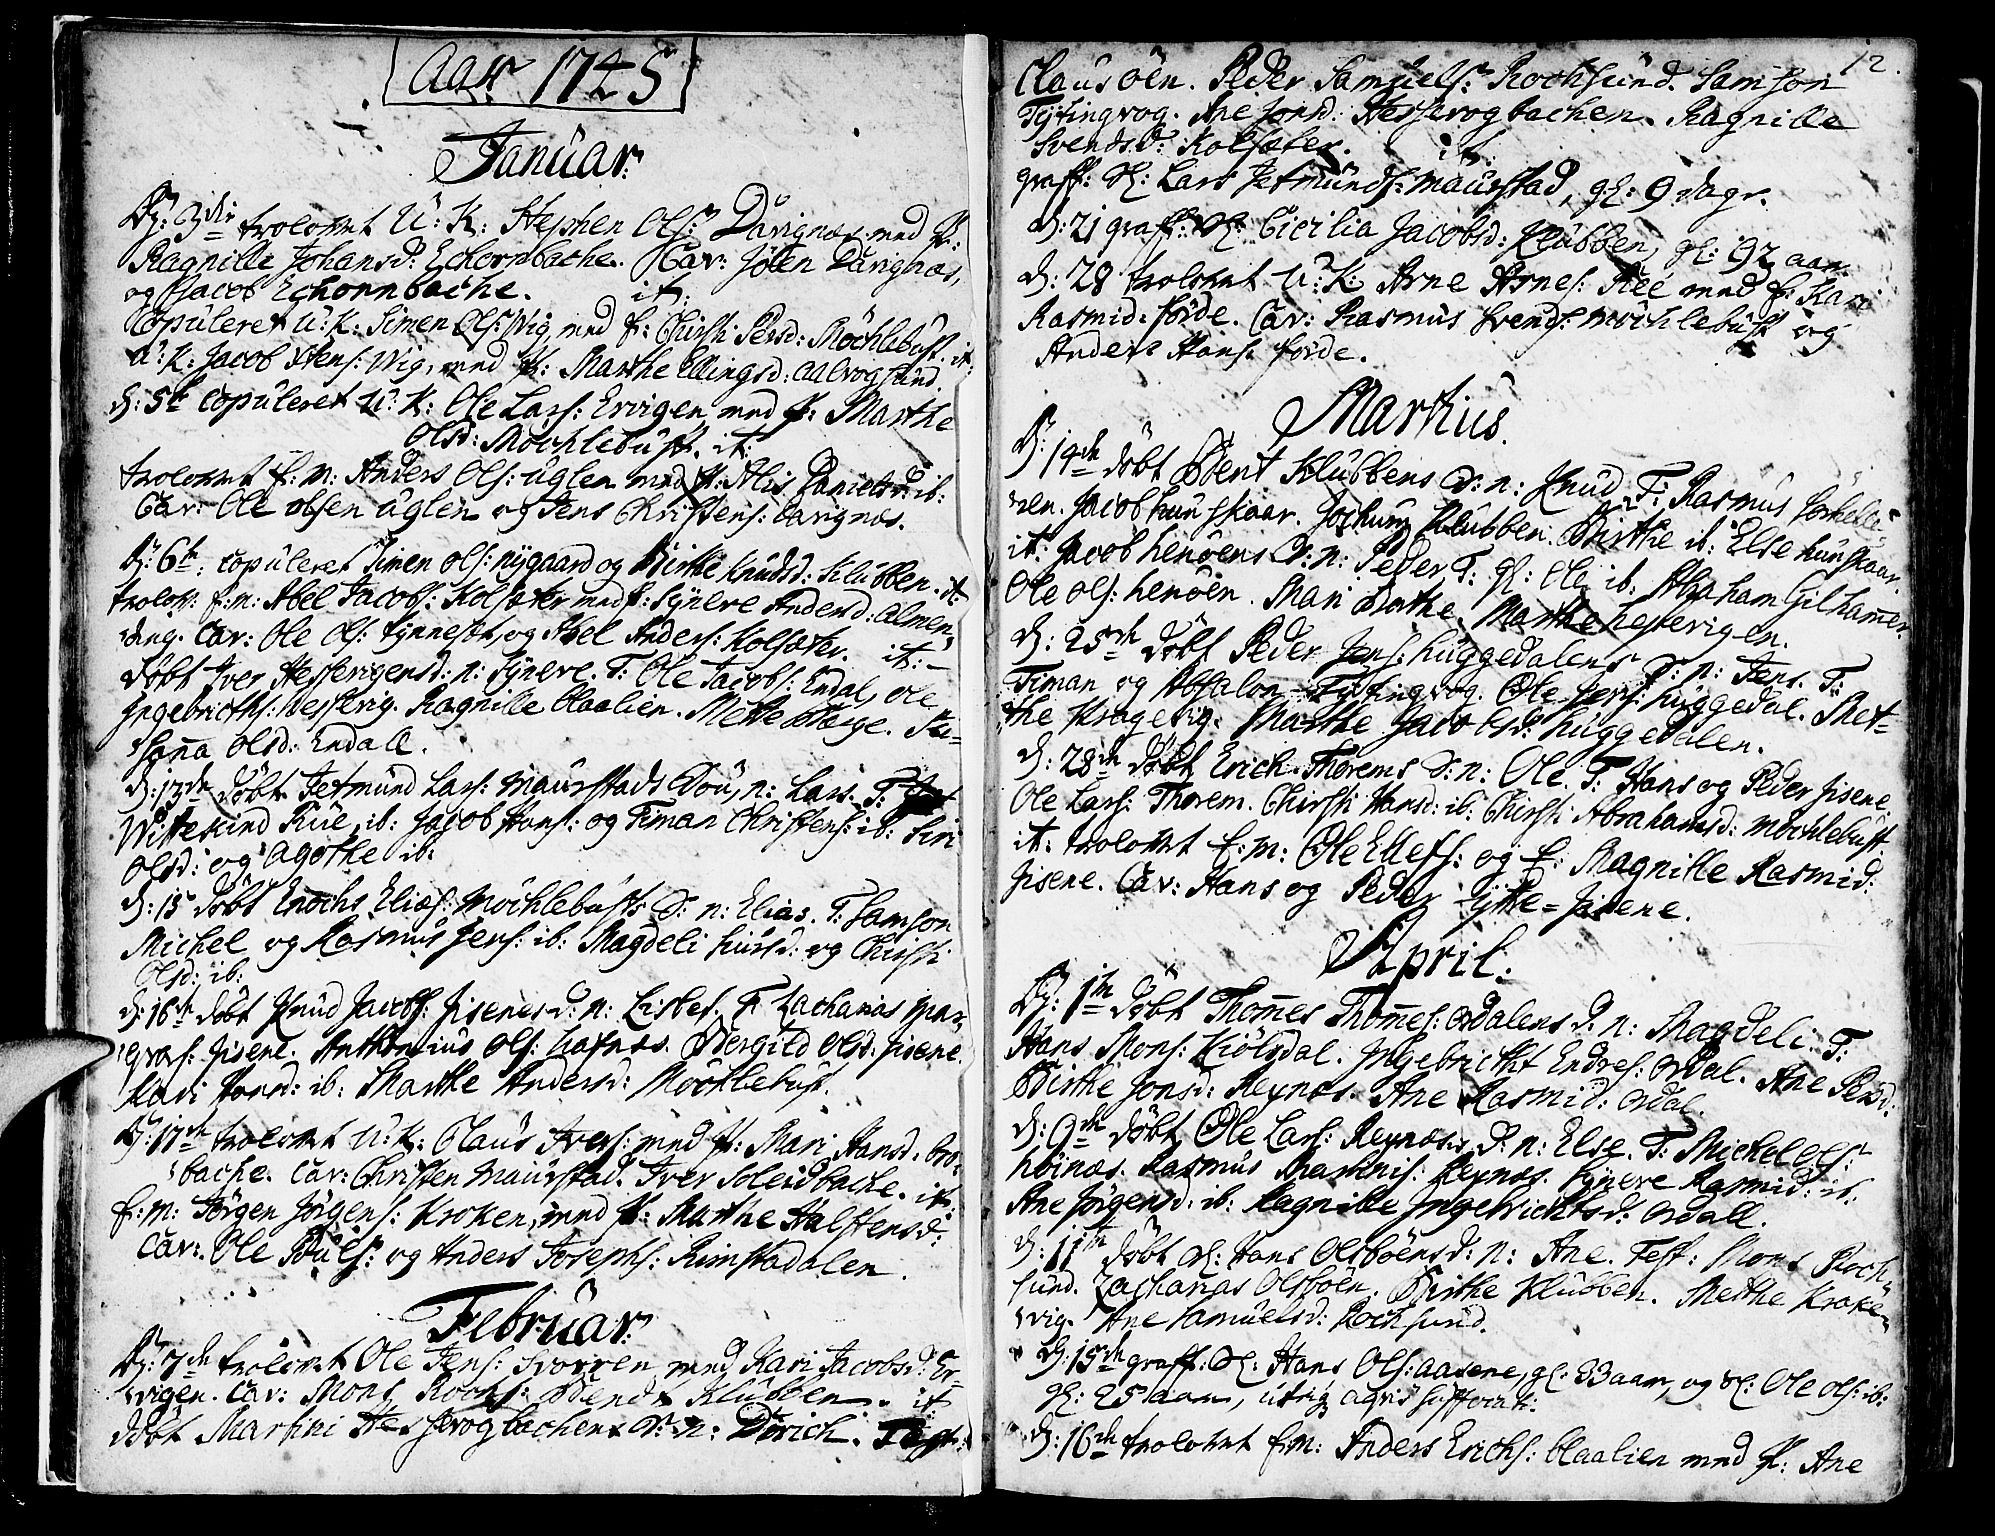 Aar 1745
Januar:
D: 3die trolovet U: K: Stephen Ols: Davignæs med P:
Ragnille Johansd: Echornbache. Cav: Joen Davignæs,
og Jacob Echornbache. it:
Copuleret U: K: Simen Ols: Wig, med P: Chirsti Persd: Möchlebust. it:
U: K: Jacob Stens: Wig, med P: Marthe Ellingsd: Aalvogsund.
D: 5te Copuleret U: K: Ole Lars: Ervigen med P: Marthe
Olsd: Möchlebust. it:
trolovet E: M: Anders Ols: Uglen med P: Alis Danielsd: ib:
Cav: Ole Olsen Uglen og Jens Christens: Davignæs.
D: 6te: Copuleret Simen Ols: Nygaard og Birthe Knudsd: Klubben. it:
trolov: E: M: Abel Jacobs: Kolsæter med P: Syneve Andersd: Almen-
ding. Cav: Ole Ols: Tynneset, og Abel Anders: Kolsæter. it:
döbt Iver Hessevigens d: n: Syneve. T: Ole Jacobs: Endal, Ole
Ingebricths: Hessevig. Ragnille Claalien. Mette Berge. Su-
sanna Olsd: Endall.
D: 13de döbt Jetmund Lars: Maurstads Sön, n: Lars. T:
Wittekind Riie, ib: Jacob Hans: og Timan Christens: ib: Siri
Olsd: og Agothe ib:
D: 15 döbt Enochs Elias: Möchlebusts S: n: Elias. T: Samson
Michel og Rasmus Jens: ib: Magdeli Hiirsd: og Chirsti
Olsd: ib:
D: 16de döbt Knud Jacobs: Jisenes d: n: Lisbet. T: Zacharias Mar-
Jisene. Anthonius Ols: Hafnæs. Bergitd Olsd: Jisene.
Kari Hansd: ib: Marthe Andersd: Möchlebust.
D: 17de trolovet U: K: Claus Ivers: med P: Mari Hansd: Bro-
bache. Cav: Christen Maurstad. Iver Soleidbache. it:
E: M: Jörgen Jörgens: Kroken, med P: Marthe Halstensd:
Cav: Ole Pouls: og Anders Josephs: Rimstadalen.
Februar:
D: 7de trolovet Ole Jens: Svorren med Kari Jacobsd: Er-
vigen. Cav: Mons Bendt Klubben. it:
döbt Martini Hessevogbachens S: n: Dörich. Test:
12.
Clausöen. Peder Samuels: Rochsund. Samson
Tytingvog. Ane Jonsd: Hessevogbachen. Ragnille
Svendsd: Kolsæter. it:
graff: S: Lars Jetmunds: Maurstad, gl: 9 dager.
D: 21 graff: S: Cicilia Jacobsd: Klubben, gl: 92 aar.
D: 28 trolovet U: K: Arne Arnes: Aée med P: Kari
Rasmid: Förde. Cav: Rasmus Svends: Möchlebust og
Anders Hans: Förde.
Martius.
D: 14de döbt Bent Klubbens S: n: Knud. T: Rasmus
Jacob Hunskaar. Jochum Klubben. Birthe ib: Else Hunskaar.
it: Jacob Henöens S: n: Peder T: gl: Ole ib: Abraham Gilhamer.
Ole Ols: Henöen. Mari Berthe. Marthe Hessevigen.
D: 25de döbt Peder Jens: Huggedalens S: n: Jens. T:
Timan og Absalon Tytingvog. Ole Jens: Huggedal. Met-
the Kragevig. Marthe Jacobsd: Huggedalen.
D: 28de döbt Erich Thorems S: n: Ole. T: Hans og Peder Jisene
Ole Lars: Thorem. Chirsti Hansd: ib: Chirsti Abrahamsd: Möchlebust.
it: trolovet E: M: Ole Ellefs: og P: Magnille Rasmid:
Jisene. Cav: Hans og Peder Jisene.
April.
D: 1te döbt Thomes Thomes: Ordalens d: n: Magdeli. T:
Hans Mons: Kiölsdal. Ingebricht Endres: Ordal. Ane Persd:
Birthe Jonsd: Reynæs. Ane Rasmid: Ordal.
D: 9de döbt Ole Lars: Reynæs d: n: Else. T: Michel Ols:
Höinæs. Rasmus Marthis: Reynæs. Syneve Rasmid: ib.
Ane Jörgensd: ib: Ragnille Ingebrichtsd: Ordall.
D: 11te döbt S: Hans Olsböens d: n: Ane. Test: Mons Roch-
sund. Zacharias Olsböen. Birthe Klubben. Metthe Kroke-
vig. Ane Samuelsd: Rochsund.
D: 15de graff: S: Hans Ols: Aasene, gl: 33 aar, og S: Ole Ols: ib:
gl: 25 aar, utriq
D: 16de trolovet E: M: Anders Erichs: Claalien med P: Ane